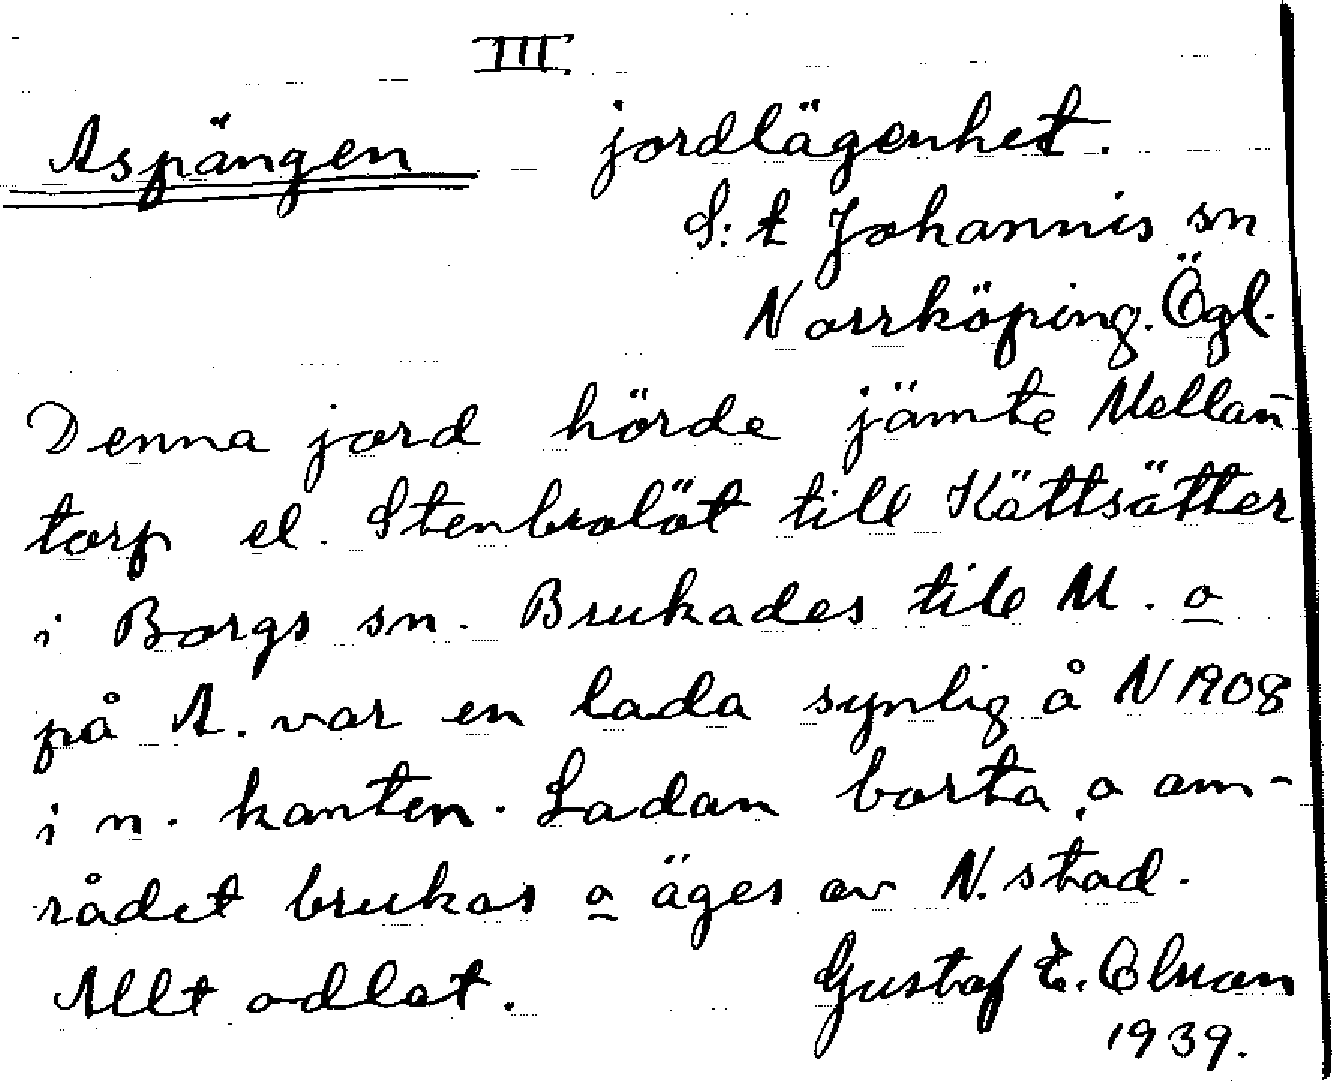 III
Aspängen jordlägenhet.
S:t Johannis sn
Norrköping. Ögl.
Denna jord hörde jämte Mellan-
torp el. Stenbrolöt till Kättsätter
i Borgs sn. Brukades till M. o
på A. var en lada synlig å N 1908
i n. kanten. Ladan borta, o om-
rådet brukas o äges av N. stad.
Allt odlat. Gustaf E. Olson
1939.